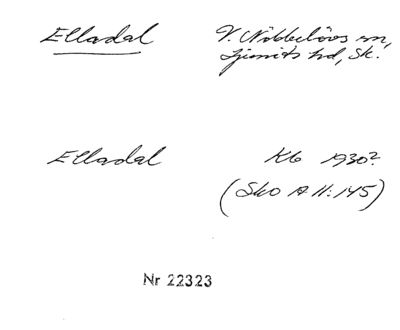 Elladal V. Nöbbelövs sn,
Ljunits hd, Sk.
Elladal Kb 1930?
(Sko A II:145)
Nr 22323